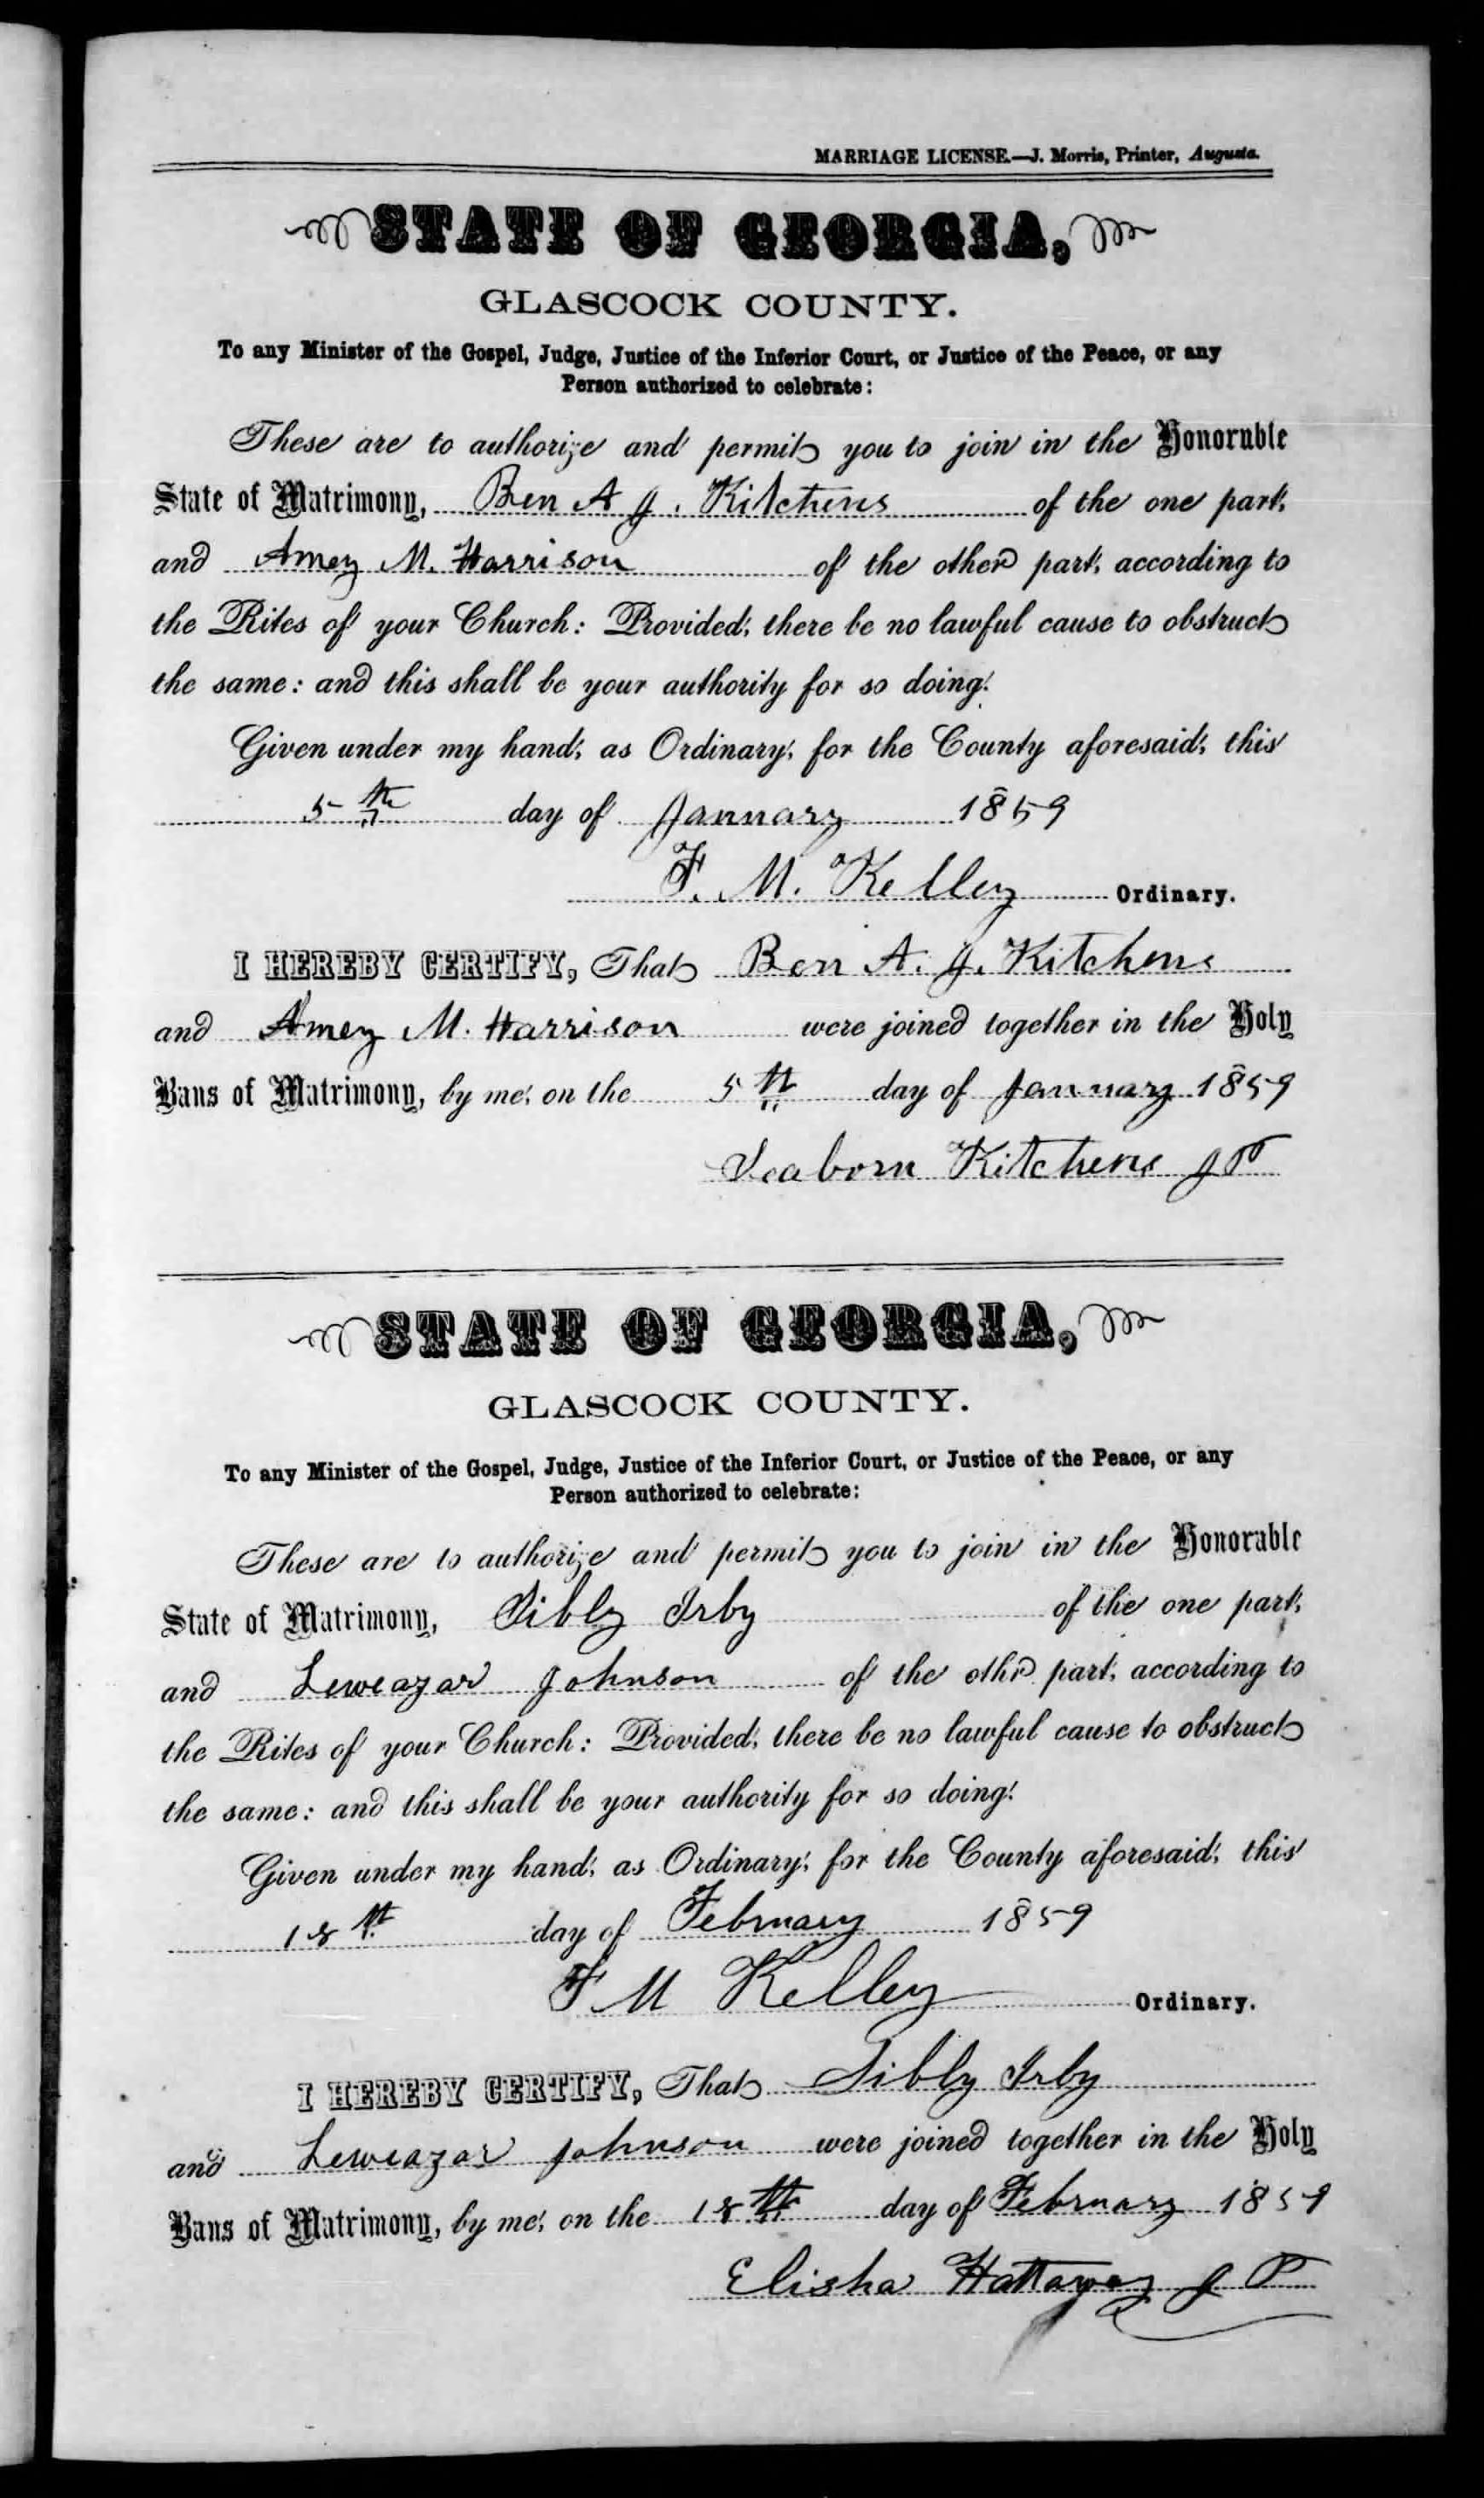 MARRIAGE LICENSE.—J. Morris, Printer, Augusta.
STATE OF GEORGIA,
GLASCOCK COUNTY.
To any Minister of the Gospel, Judge, Justice of the Inferior Court, or Justice of the Peace, or any
Person authorized to celebrate:
These are to authorize and permit you to join in the Honorable
State of Matrimony, Ben A J. Kitchens of the one part,
and Amey M. Harrison of the other part, according to
the Rites of your Church: Provided, there be no lawful cause to obstruct
the same: and this shall be your authority for so doing.
Given under my hand, as Ordinary, for the County aforesaid, this
5th day of January 1859
F. M. Kelley Ordinary.
I HEREBY CERTIFY, That Ben A. J. Kitchens
and Amey M. Harrison were joined together in the Holy
Bans of Matrimony, by me, on the 5th day of January 1859
Seaborn Kitchens JP
STATE OF GEORGIA,
GLASCOCK COUNTY.
To any Minister of the Gospel, Judge, Justice of the Inferior Court, or Justice of the Peace, or any
Person authorized to celebrate:
These are to authorize and permit you to join in the Honorable
State of Matrimony, Sibly Irby of the one part,
and Leweazar Johnson of the othr part, according to
the Rites of your Church: Provided, there be no lawful cause to obstruct
the same: and this shall be your authority for so doing.
Given under my hand, as Ordinary, for the County aforesaid, this
18th day of February 1859
F M Kelley Ordinary.
I HEREBY CERTIFY, That Sibly Irby
and Leweazar Johnson were joined together in the Holy
Bans of Matrimony, by me, on the 18th day of February 1859
Elisha Hattaway J. P.